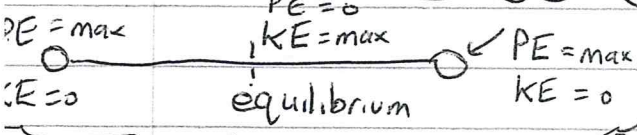 PE = 0
PE = max
KE = max
PE = max
KE = 0
E = 0
equilibrium